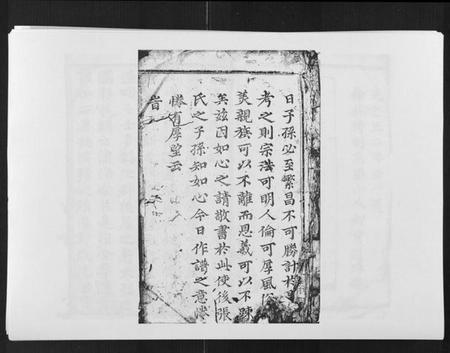 日子孫必至繁昌不可勝計於
考之則宗法可明人倫可厚風俗
美親族可以不離而恩義可以不踈
矣茲因如心之請敬書於此使後張
氏之子孫知如心今日作譜之意惓
惓有厚望云
旹